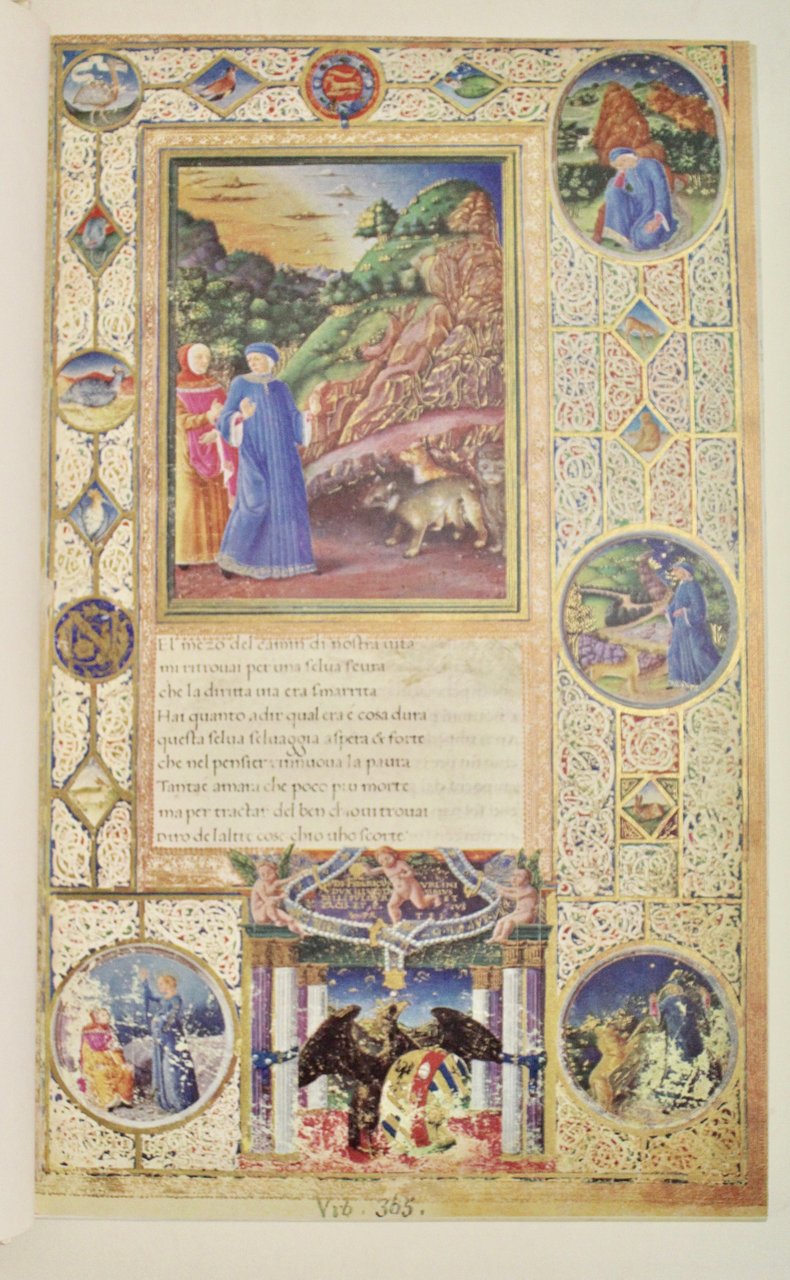 El mezo del camin di nostra uita
mi ritrouai per una selua scura
che la diritta uia era smarrita
Hai quanto adir qual era é cosa dura
questa selua seluaggia aspera & forte
che nel pensier rinnuoua la paura
Tantae amara che poco piu morte
ma per tractar del ben chioui trouai
diro de laltre cose chio uho scorte
Vrb. 365.